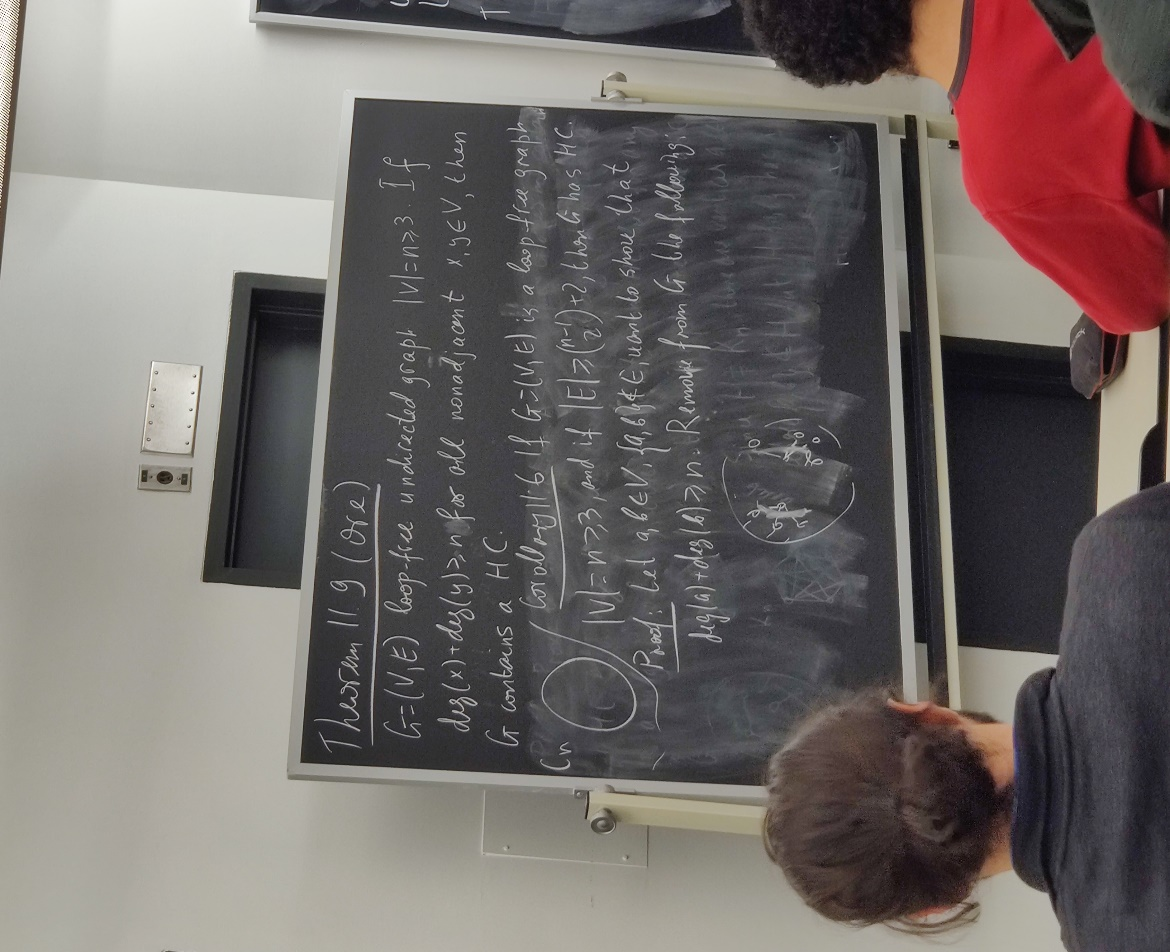 Theorem 11.9 (Ore)
G=(V,E) loop-free undirected graph |V|=n≥3. If
deg(x)+deg(y)≥n for all nonadjacent x,y∈V, then
G contains a HC.
Cn
Corollary 11.6 If G=(V,E) is a loop-free graph,
|V|=n≥3, and if |E|≥(n-1 2)+2, then G has HC.
Proof: Let a,b∈V, {a,b}∉E, want to show that
deg(a)+deg(b)≥n. Remove from G the following: